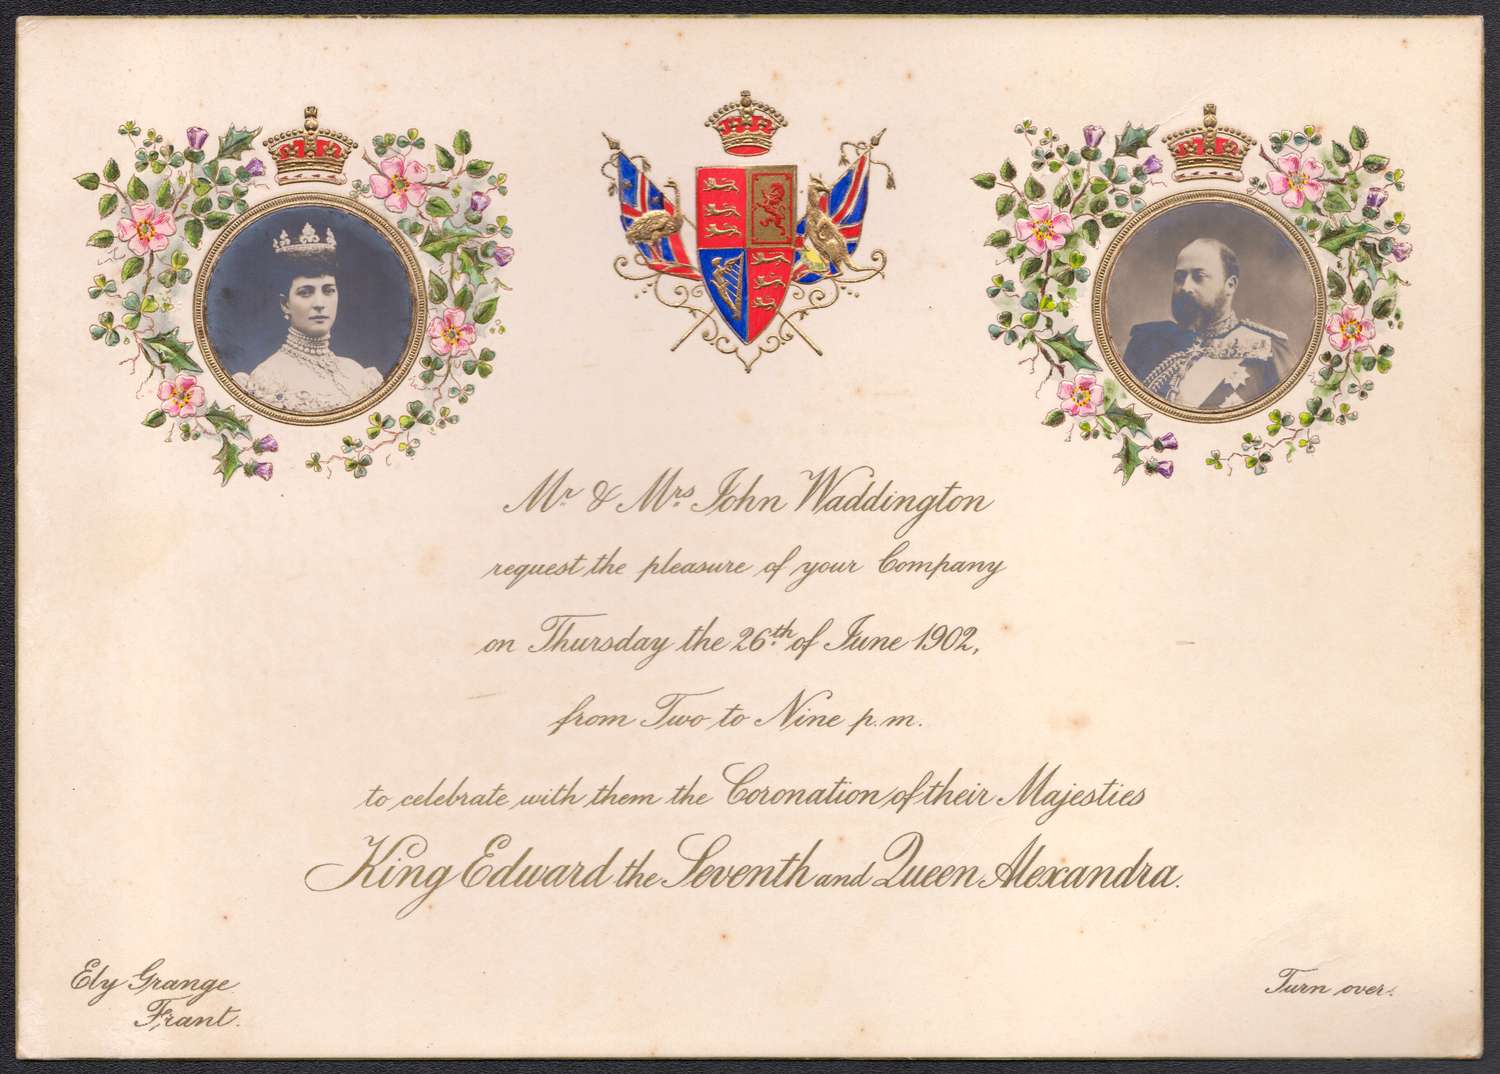 Mr & Mrs John Waddington
request the pleasure of your Company
on Thursday the 26th of June 1902,
from Two to Nine p.m.
to celebrate with them the Coronation of their Majesties
King Edward the Seventh and Queen Alexandra.
Ely Grange
Frant.
Turn over.